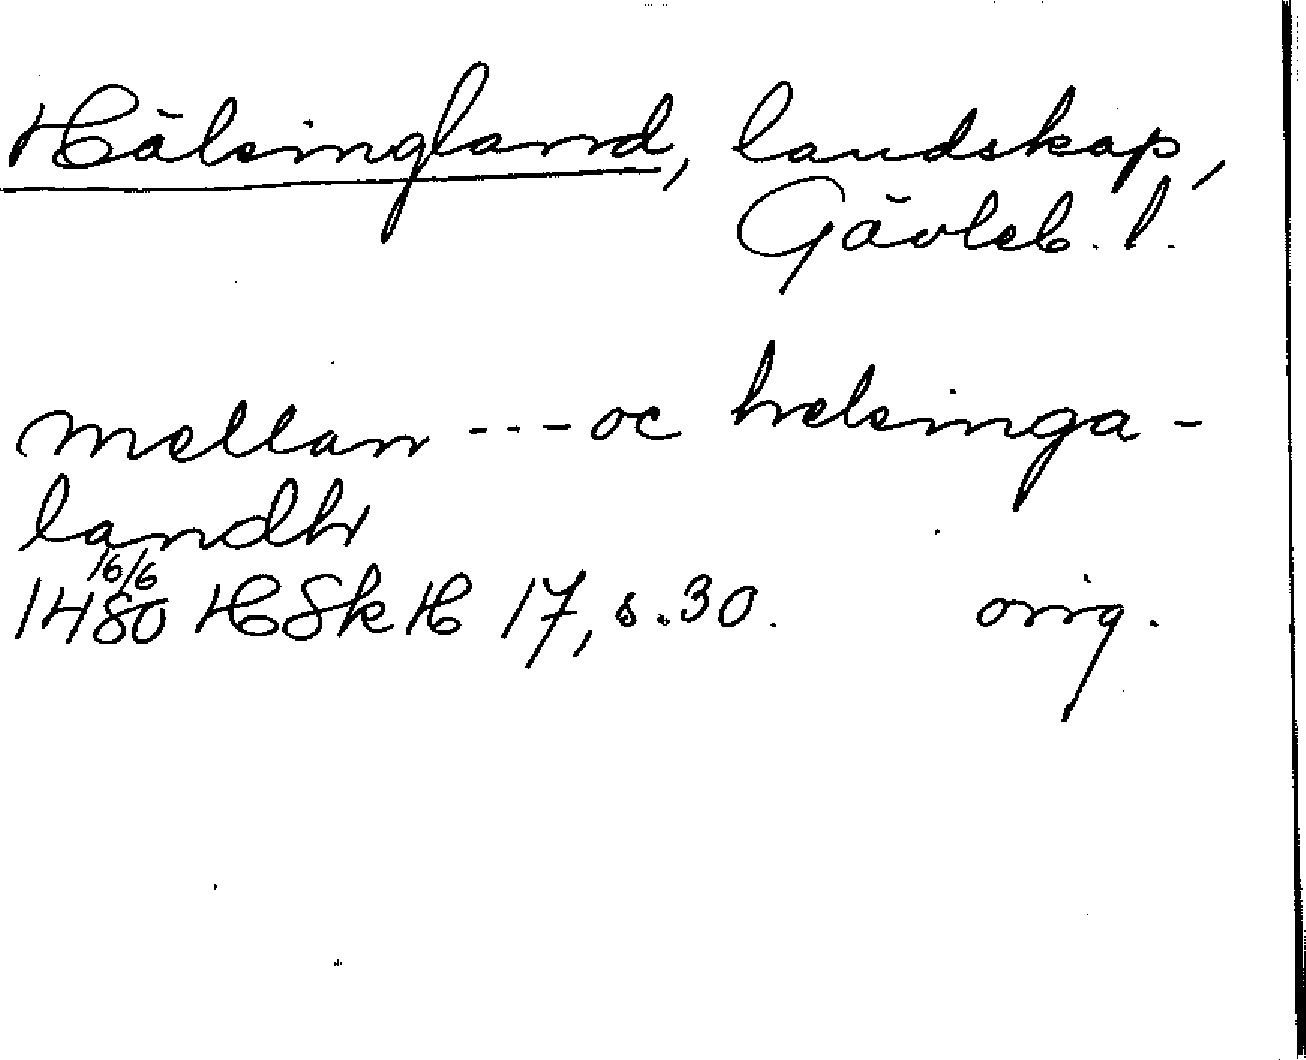 Hälsingland, landskap,
Gävleb. l.
mellan --- oc helsinga-
landh
16/6
1480 HSkH 17, s. 30. orig.